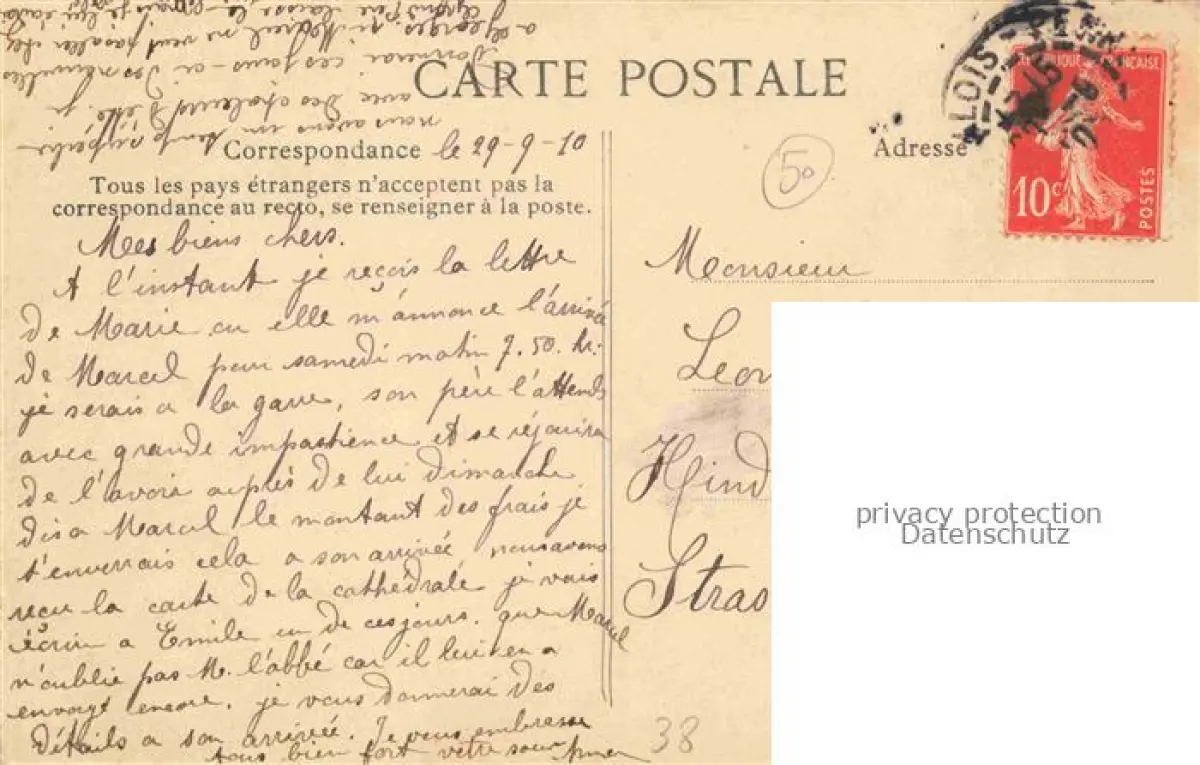 CARTE POSTALE
Correspondance le 29-9-10
Adresse
Tous les pays étrangers n'acceptent pas la
correspondance au recto, se renseigner à la poste.
Mes biens chers.
A l'instant je reçois la lettre
de Marie ou elle m'annonce l'arrivé
de Marcel pour samedi matin 7.50. hr.
je serais a la garre, son père l'attends
avec grande impastience et se rejouira
de l'avoir auprès de lui dimanche
dis a Marcel le montant des frais je
t'enverrais cela a son arrivée nous avons
reçu la carte de la cathédrale je vais
écrire a Emile un de ces jours. que Marcel
n'oublie pas M. l'abbé car il lui en a
envoyé encore. je vous donnerai des
détails a son arrivée. Je vous embrasse
tous bien fort votre soeur
nous avons un temps
avec des chaleurs d'été. je
donnerai ces jours-ci des nouvelles
a Georges, si Marcel ne veut pas aller chez
grand père
LOIS-PERR
REPUBLIQUE FRANÇAISE
10c
POSTES
50
Monsieur
Leon
Hind
Stras
38
privacy protection
Datenschutz